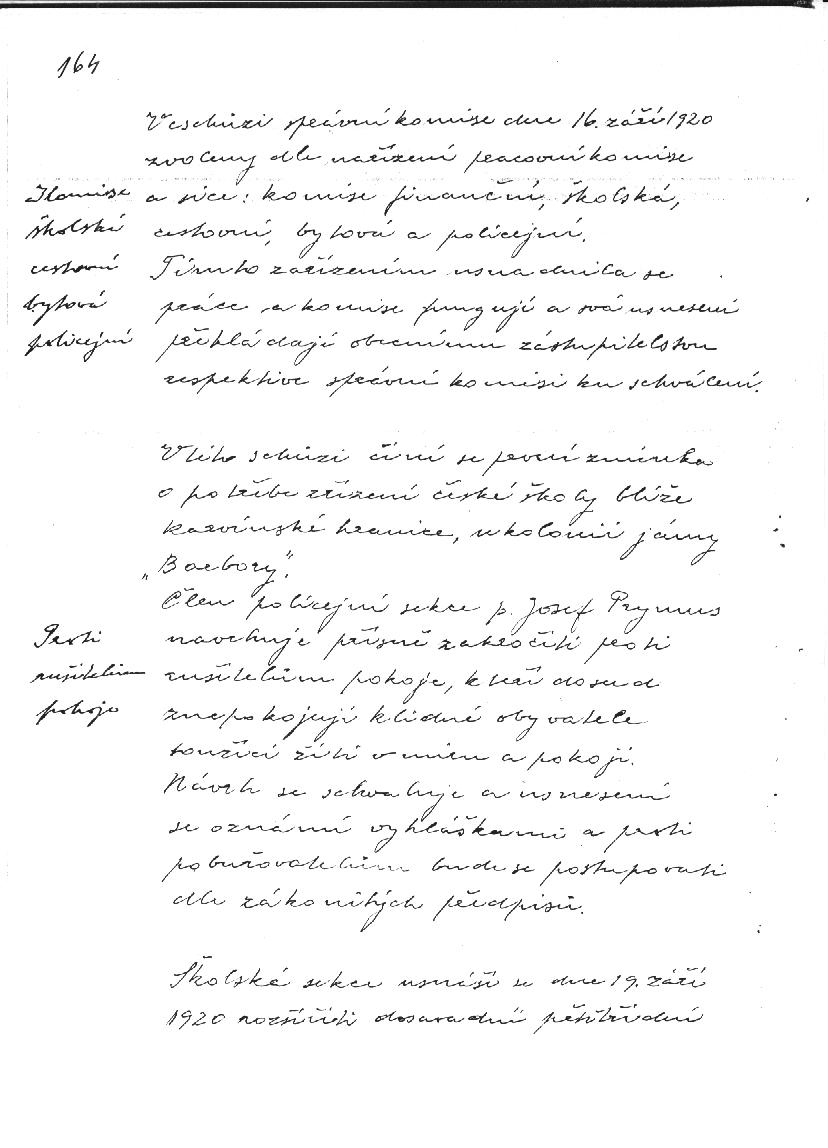 164
Ve schůzi správní komise dne 16. září 1920
zvoleny dle nařízení pracovní komise
a sice: komise finanční, školská,
cestovní, bytová a policejní.
Tímto zařízením usnadnila se
práce a komise fungují a svá usnesení
předkládají obecnímu zástupitelstvu
respektive správní komisi ku schválení.
Komise
školská
cestovní
bytová
policejní
V této schůzi činí se první zmínka
o potřebě zřízení české školy blíže
karvínské hranice, u kolonii jámy
„Barbory".
Člen policejní sekce p. Josef Prymus
navrhuje přísně zakročiti proti
rušitelům pokoje, kteří dosud
znepokojují klidné obyvatele
toužící žíti v míru a pokoji.
Návrh se schvaluje a usnesení
se oznámí vyhláškami a proti
pobuřovatelům bude se postupovati
dle zákonitých předpisů.
Proti
rušitelům
pokoje
Školská sekce usnáší se dne 19. září
1920 rozšířiti dosavadní pětitřídní